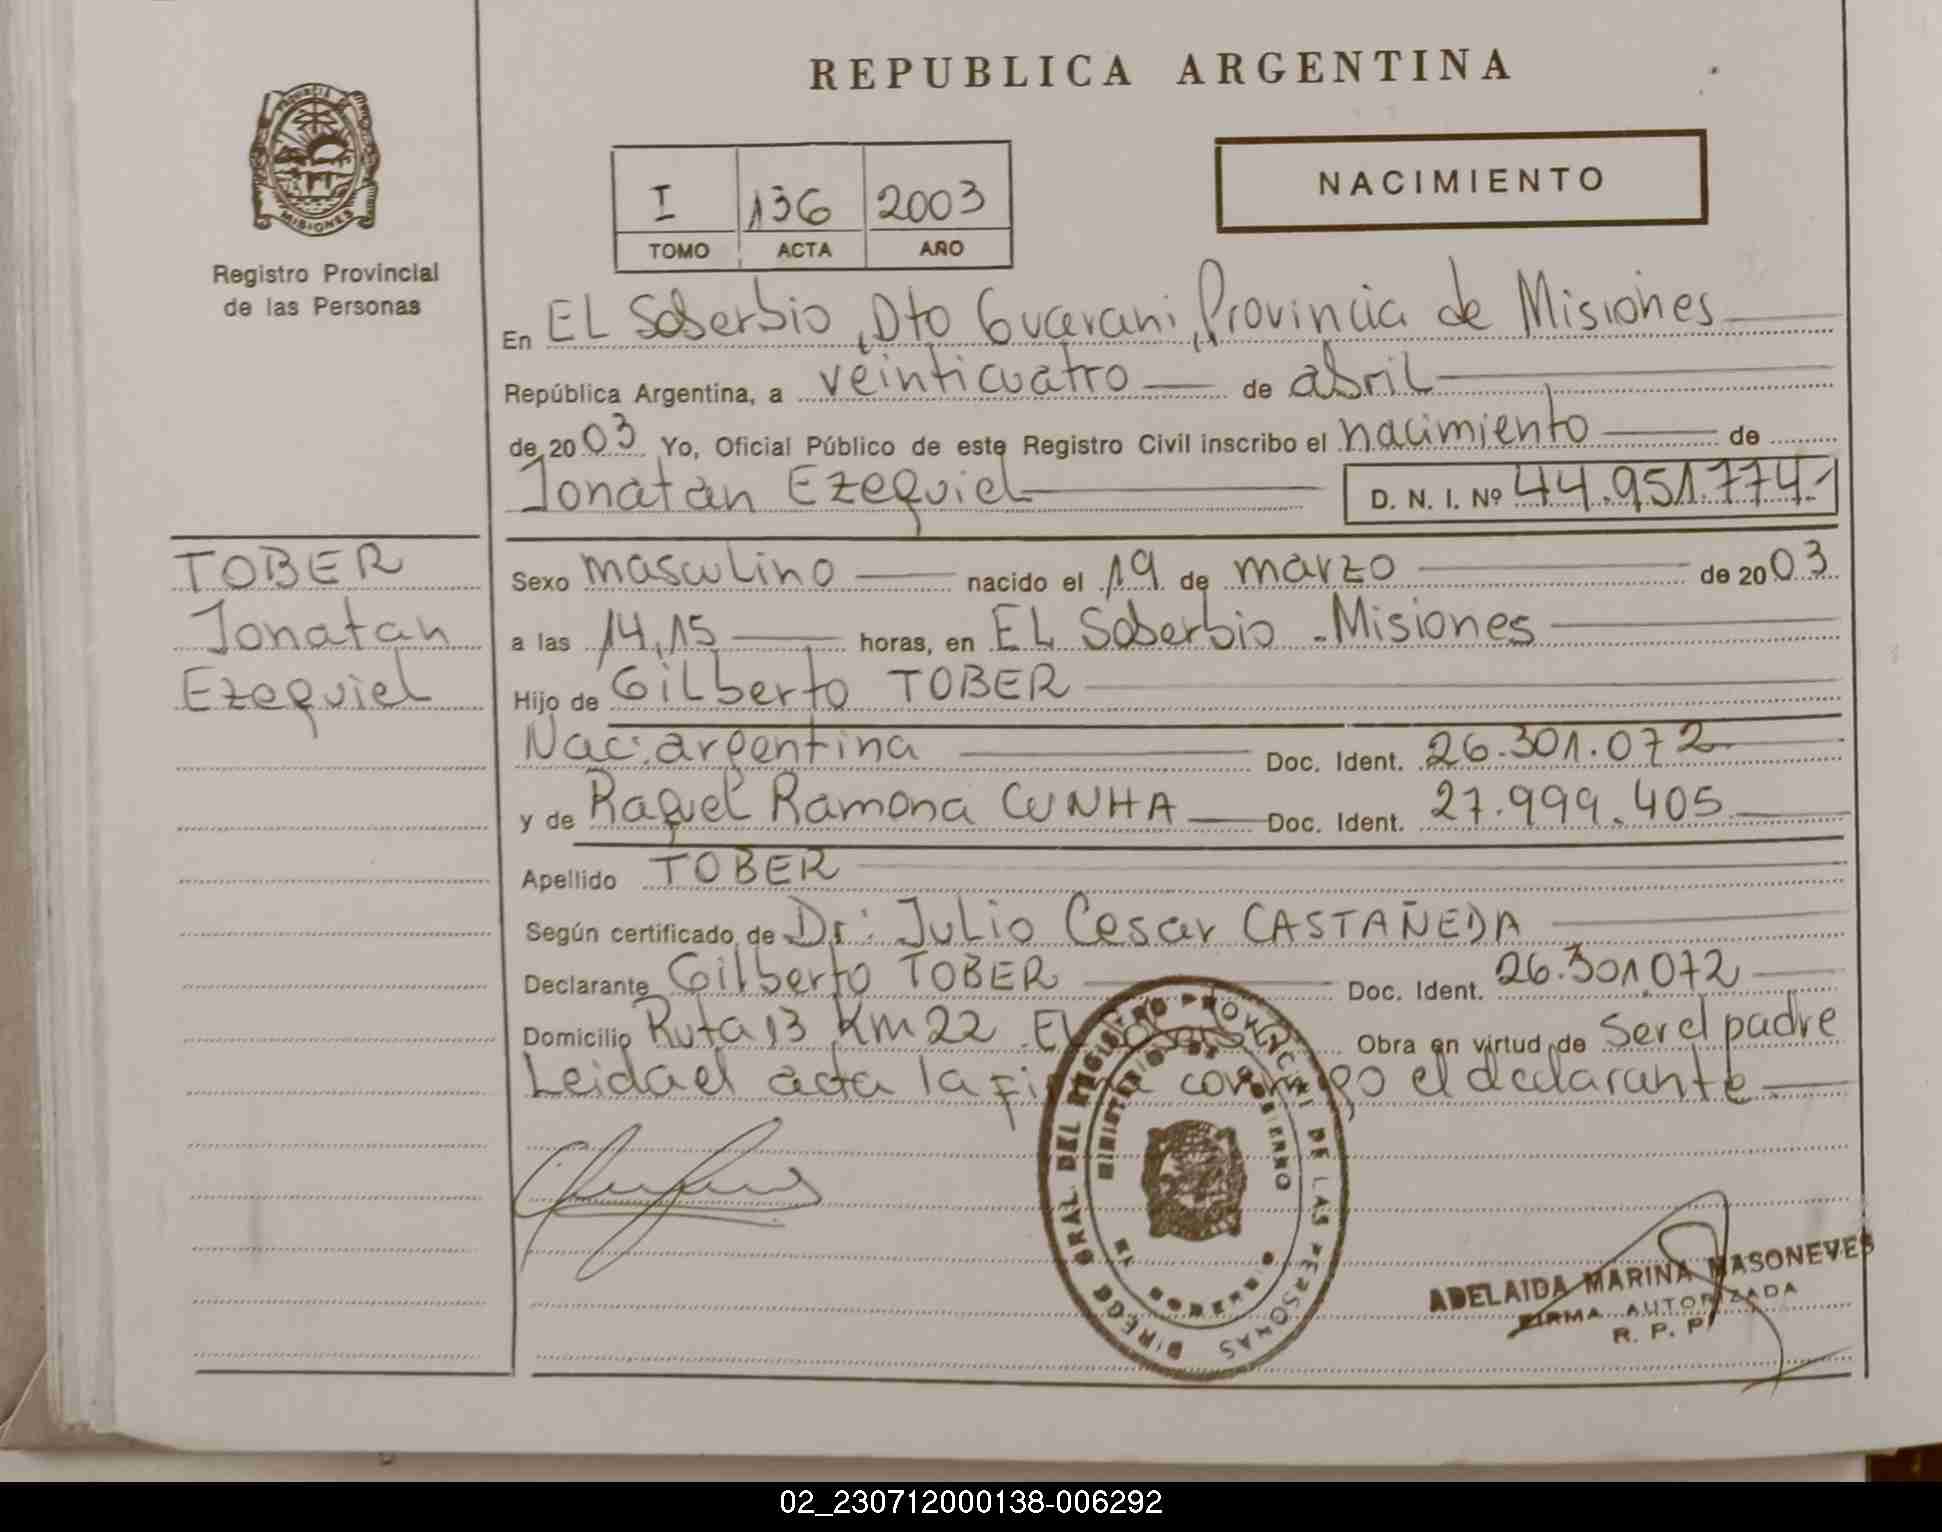 REPUBLICA ARGENTINA
PROVINCIA DE
MISIONES
Registro Provincial
de las Personas
I 136 2003
TOMO ACTA AÑO
NACIMIENTO
En EL Soberbio, Dto Guarani, Provincia de Misiones
República Argentina, a veinticuatro de abril
de 2003 Yo, Oficial Público de este Registro Civil inscribo el nacimiento de
Jonatan Ezequiel D. N. I. Nº 44.951.774
TOBER
Jonatan
Ezequiel
Sexo masculino nacido el 19 de marzo de 2003
a las 14,15 horas, en EL Soberbio - Misiones
Hijo de Gilberto TOBER
Nac: argentina Doc. Ident. 26.301.072
y de Raquel Ramona CUNHA Doc. Ident. 27.999.405
Apellido TOBER
Según certificado de Dr: Julio Cesar CASTAÑEDA
Declarante Gilberto TOBER Doc. Ident. 26.301.072
Domicilio Ruta 13 Km 22 El Obra en virtud de ser el padre
Leida el acta la firma conmigo el declarante
DIRECC GRAL. DEL REGISTRO PROVINCIAL DE LAS PERSONAS
MINISTERIO DE GOBIERNO
ADELAIDA MARINA MASONEVES
FIRMA AUTORIZADA
R. P. P.
02_230712000138-006292